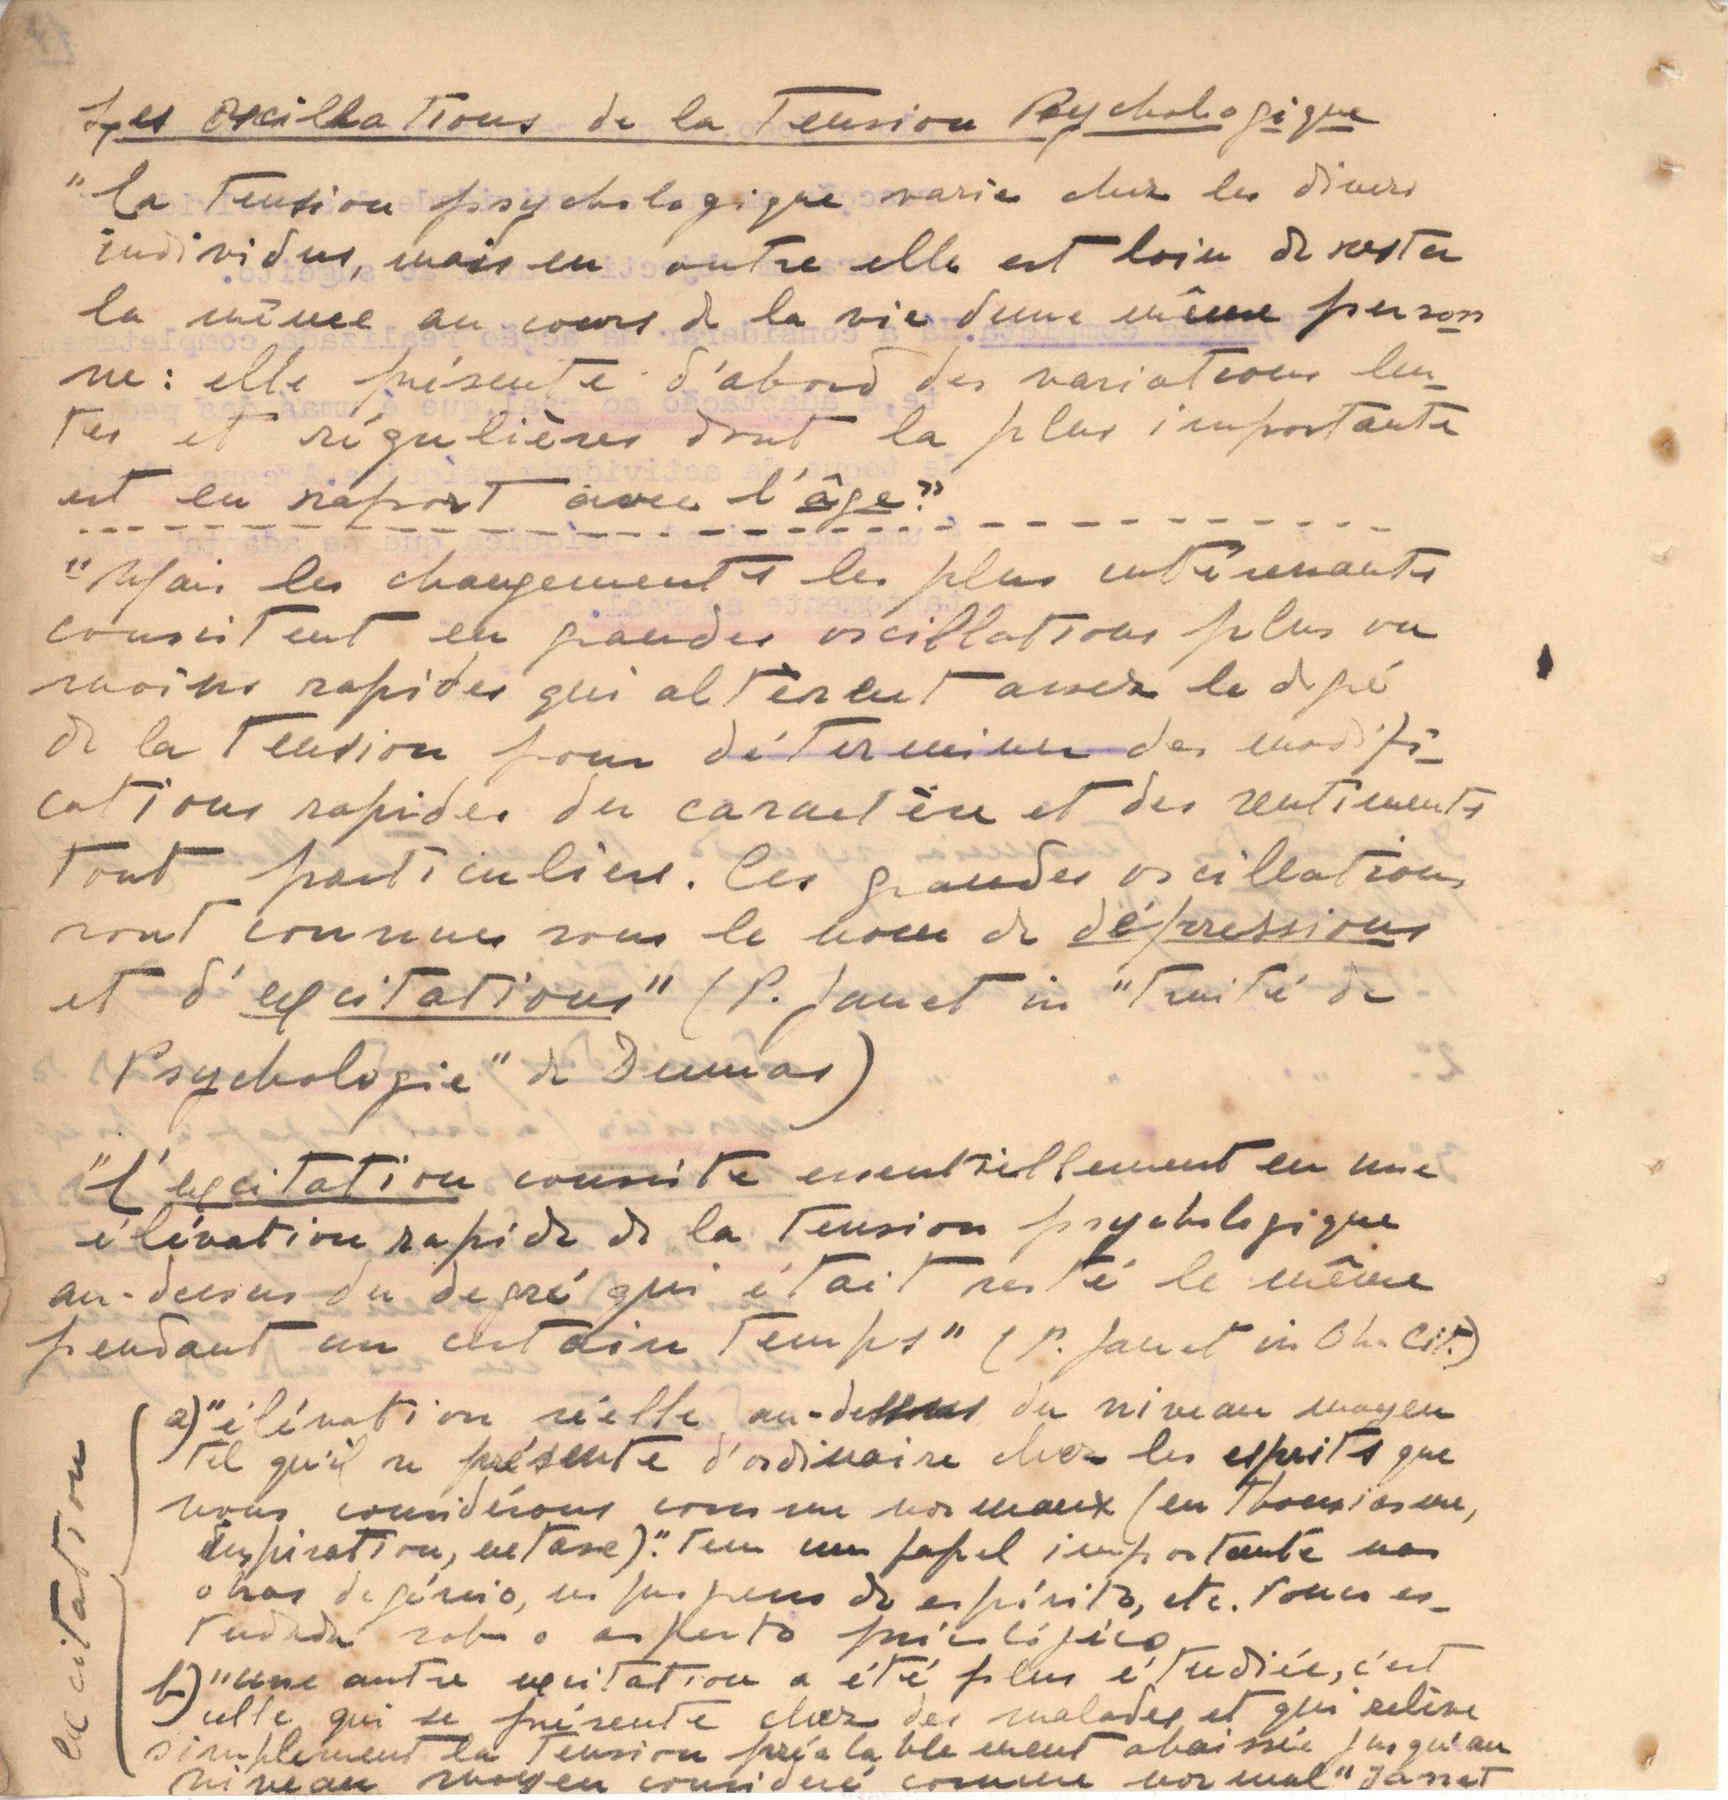 Les Oscillations de la Tension Psychologique
"La tension psychologique varie chez les divers
individus, mais en outre elle est loin de rester
la même au cours de la vie d'une même person
ne: elle présente d'abord des variations len-
tes et régulières dont la plus importante
est en raport avec l'âge."
"Mais les changements les plus intéressants
consistent en grandes oscillations plus ou
moins rapides qui altèrent assez le degré
de la tension pour déterminer des modifi-
cations rapides du caractère et des sentiments
tout particuliers. Ces grandes oscillations
sont connues sous le nom de dépressions
et d'excitations" (P. Janet in "Traité de
Psychologie" de Dumas)
"L'excitation consiste essentiellement en une
élévation rapide de la tension psychologique
au-dessus du degré qui était resté le même
pendant un certain temps" (P. Janet in Ob. Cit.)
excitation
a) "élévation réelle au-dessus du niveau moyen
tel qu'il se présente d'ordinaire chez les esprits que
nous considérons comme normaux (enthousiasme,
inspiration, extase)". Tem um papel importante nas
obras de génio, de espírito, etc. Pouco es-
tudada sob o aspecto psicológico
b) "une autre excitation a été plus étudiée, c'est
celle qui se présente chez des malades et qui relève
simplement la tension préalablement abaissée jusqu'au
niveau moyen considéré comme normal" Janet